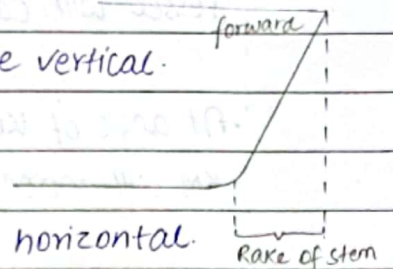 forward
e vertical.
horizontal.
Rake of stem